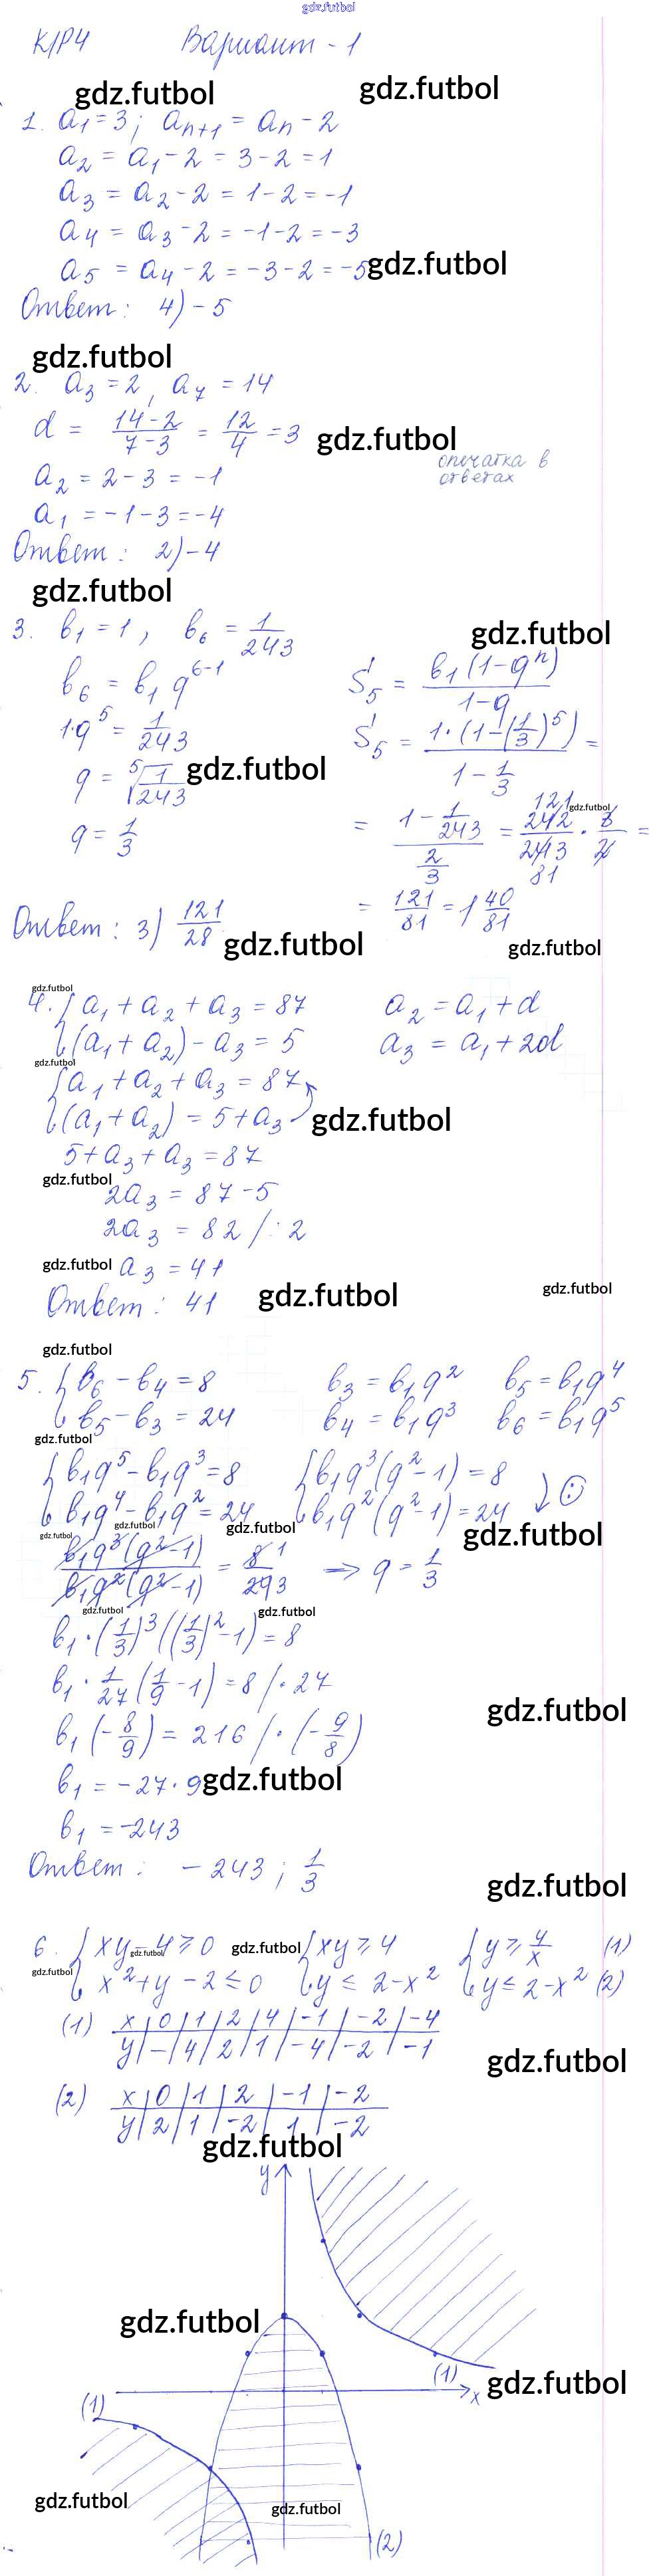 gdz.futbol
К/Р4 Вариант - 1
gdz.futbol gdz.futbol
1. a₁ = 3; aₙ₊₁ = aₙ - 2
a₂ = a₁ - 2 = 3 - 2 = 1
a₃ = a₂ - 2 = 1 - 2 = -1
a₄ = a₃ - 2 = -1 - 2 = -3
a₅ = a₄ - 2 = -3 - 2 = -5 gdz.futbol
Ответ: 4) - 5
gdz.futbol
2. a₃ = 2, a₇ = 14
d = (14-2)/(7-3) = 12/4 = 3 gdz.futbol
опечатка в
ответах
a₂ = 2 - 3 = -1
a₁ = -1 - 3 = -4
Ответ: 2) -4
gdz.futbol
3. b₁ = 1, b₆ = 1/243 gdz.futbol
b₆ = b₁ q⁶⁻¹ S₅ = b₁(1-qⁿ)/(1-q)
1·q⁵ = 1/243 S₅ = 1·(1-(1/3)⁵)/(1 - 1/3) =
q = ⁵√(1/243) gdz.futbol
q = 1/3 = (1 - 1/243)/(2/3) = 242/243 · 3/2 =
121 gdz.futbol
81
= 121/81 = 1 40/81
Ответ: 3) 121/28 gdz.futbol gdz.futbol
gdz.futbol
4. { a₁ + a₂ + a₃ = 87 a₂ = a₁ + d
(a₁ + a₂) - a₃ = 5 a₃ = a₁ + 2d
gdz.futbol
{ a₁ + a₂ + a₃ = 87
(a₁ + a₂) = 5 + a₃ gdz.futbol
5 + a₃ + a₃ = 87
gdz.futbol 2a₃ = 87 - 5
2a₃ = 82 /:2
gdz.futbol a₃ = 41
Ответ: 41 gdz.futbol gdz.futbol
gdz.futbol
5. { b₆ - b₄ = 8 b₃ = b₁q² b₅ = b₁q⁴
b₅ - b₃ = 24 b₄ = b₁q³ b₆ = b₁q⁵
gdz.futbol
{ b₁q⁵ - b₁q³ = 8 { b₁q³(q² - 1) = 8
b₁q⁴ - b₁q² = 24 b₁q²(q² - 1) = 24 ↓ (:)
gdz.futbol gdz.futbol gdz.futbol gdz.futbol
b₁q³(q²-1)/b₁q²(q²-1) = 8 1/24 3 ⇒ q = 1/3
gdz.futbol gdz.futbol
b₁·(1/3)³((1/3)² - 1) = 8
b₁ · 1/27 (1/9 - 1) = 8 /· 27
gdz.futbol
b₁ (-8/9) = 216 /· (-9/8)
b₁ = -27 · 9 gdz.futbol
b₁ = -243
Ответ: - 243; 1/3
gdz.futbol
6. { xy - 4 ≥ 0 gdz.futbol gdz.futbol { xy ≥ 4 { y ≥ 4/x (1)
gdz.futbol x² + y - 2 ≤ 0 y ≤ 2 - x² y ≤ 2 - x² (2)
(1) x | 0 | 1 | 2 | 4 | -1 | -2 | -4
y | - | 4 | 2 | 1 | -4 | -2 | -1
gdz.futbol
(2) x | 0 | 1 | 2 | -1 | -2
y | 2 | 1 | -2 | 1 | -2
gdz.futbol
y
gdz.futbol
(1)
x gdz.futbol
(1)
gdz.futbol gdz.futbol
(2)